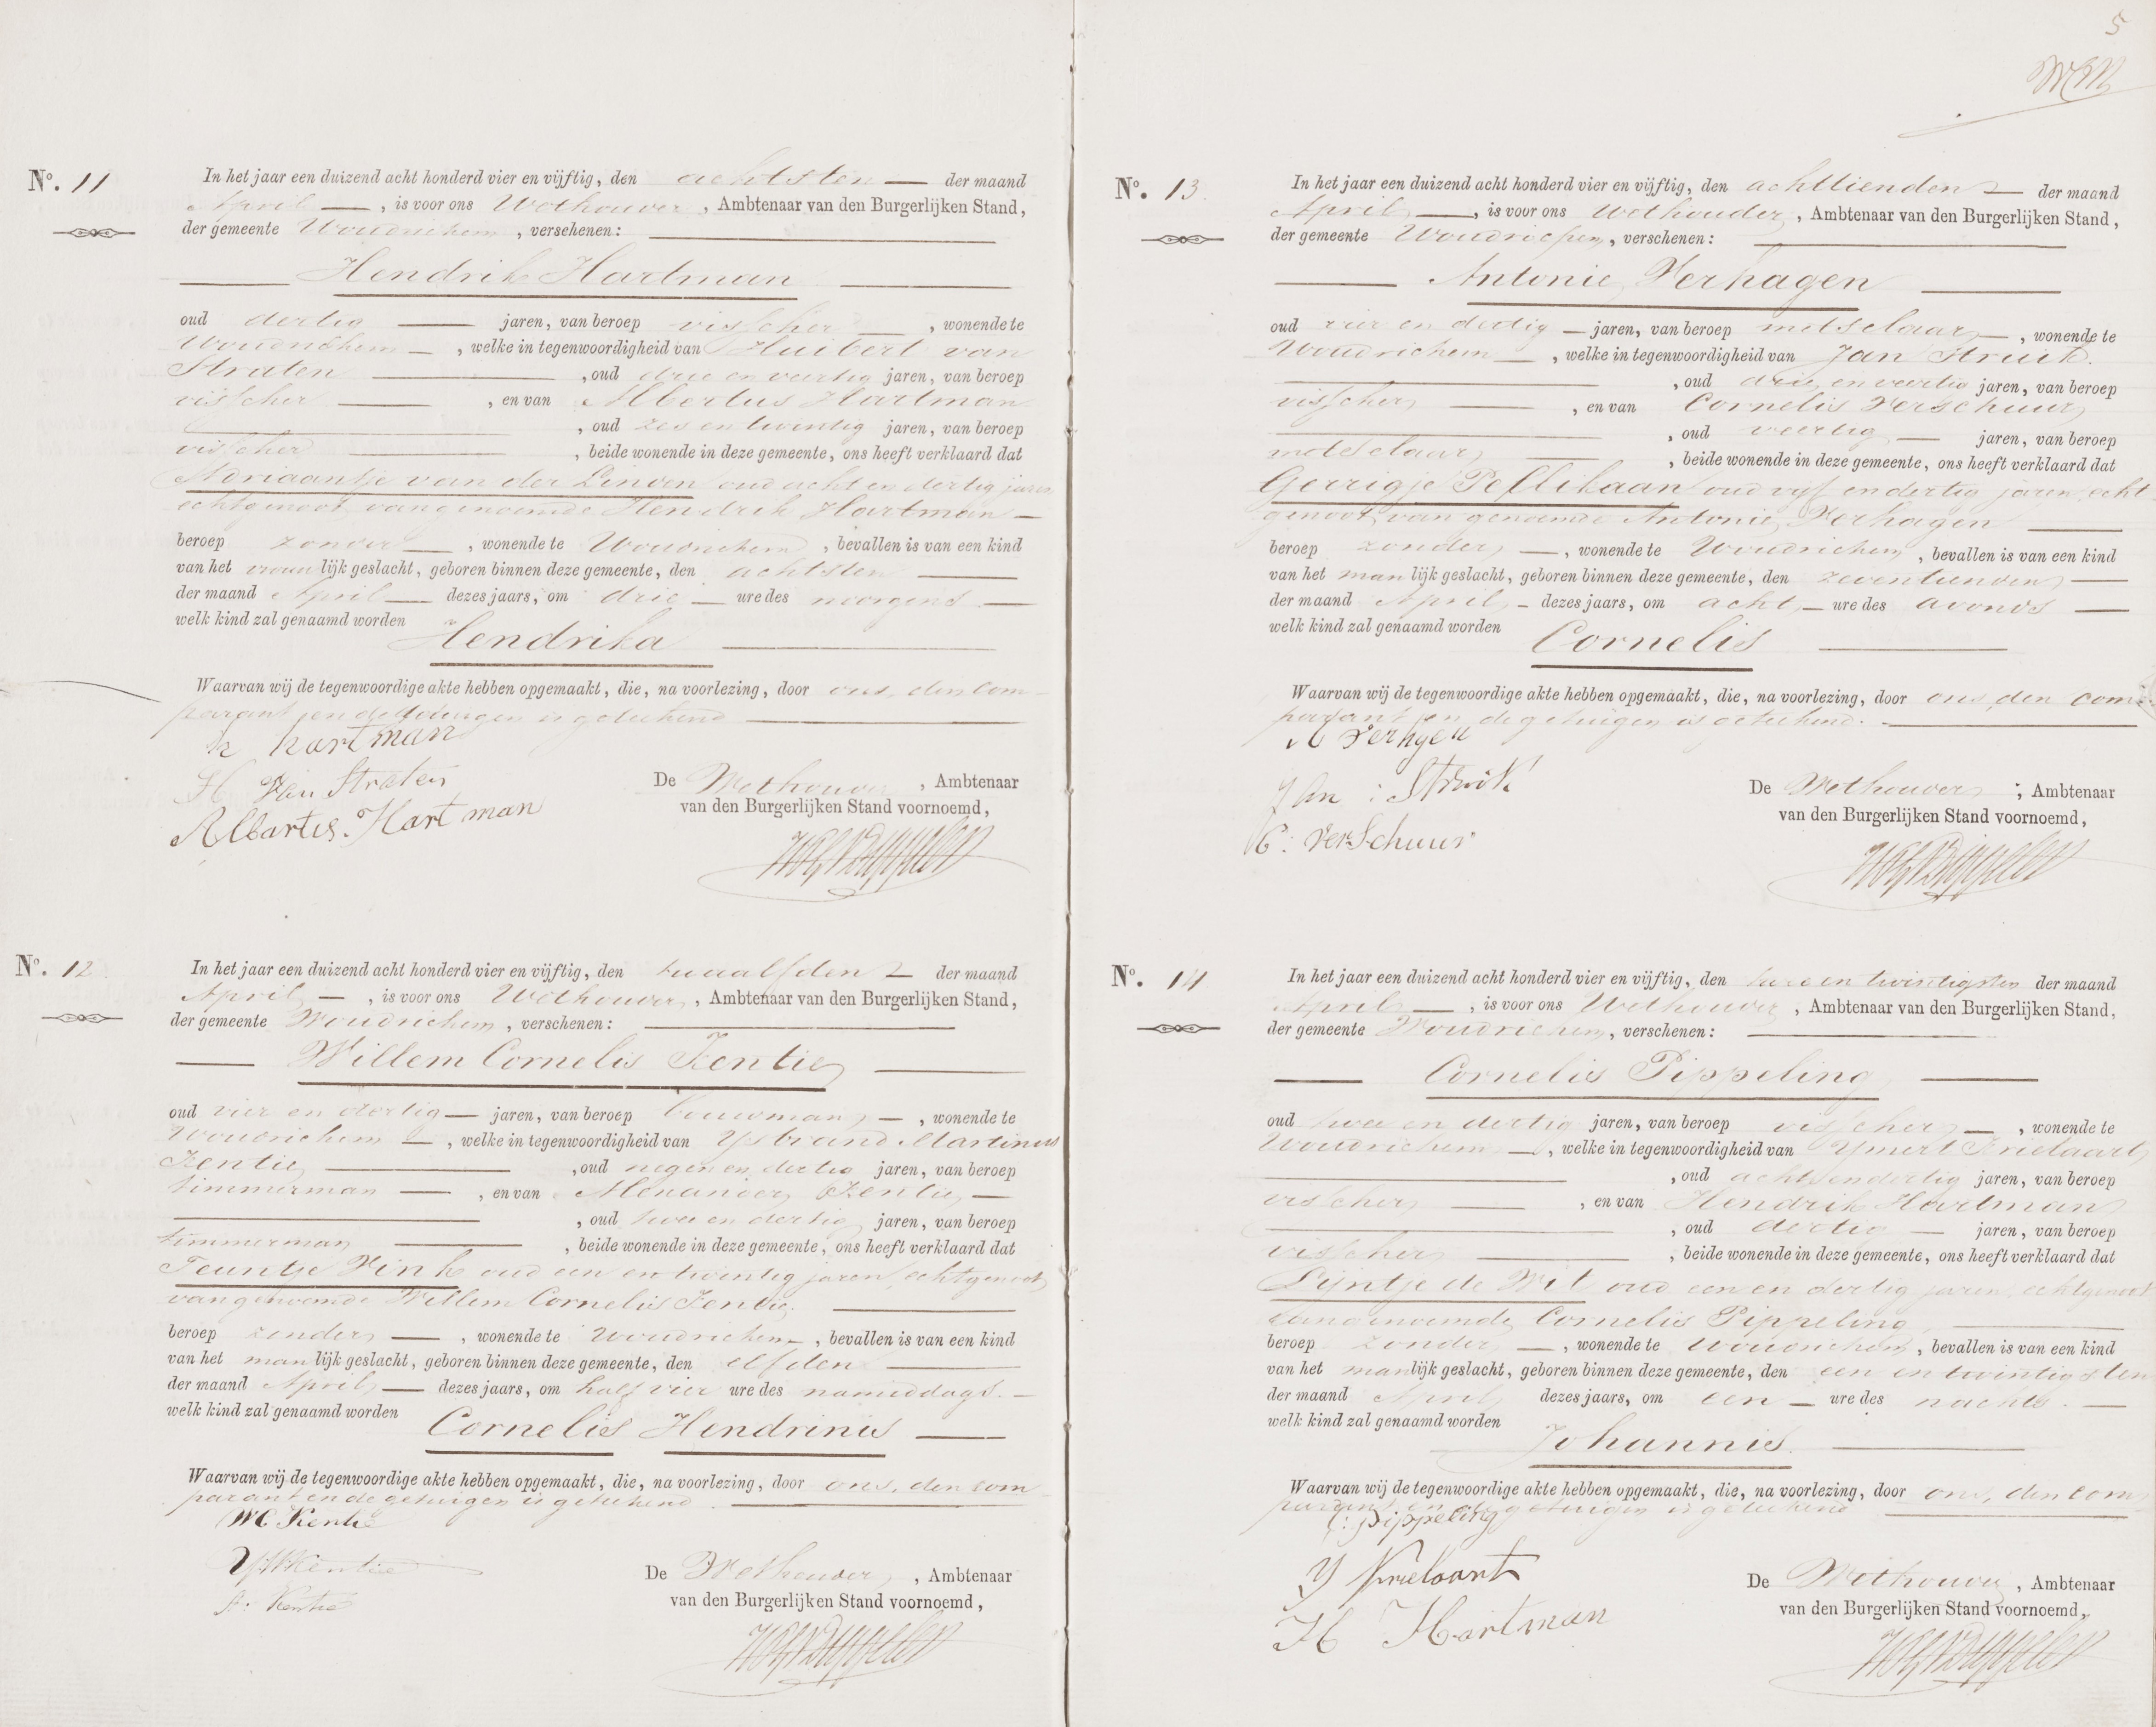 Nº. 11
In het jaar een duizend acht honderd vier en vijftig, den achtsten der maand
April, is voor ons Wethouder, Ambtenaar van den Burgerlijken Stand,
der gemeente Woudrichem, verschenen:
Hendrik Hartman
oud dertig jaren, van beroep visscher, wonende te
Woudrichem, welke in tegenwoordigheid van Huibert van
Straten, oud drie en veertig jaren, van beroep
visscher, en van Albertus Hartman
, oud zes en twintig jaren, van beroep
visscher, beide wonende in deze gemeente, ons heeft verklaard dat
Adriaantje van der Linden oud acht en dertig jaren
echtgenoot van genoemde Hendrik Hartman
beroep zonder, wonende te Woudrichem, bevallen is van een kind
van het vrouwlijk geslacht, geboren binnen deze gemeente, den achtsten
der maand April dezes jaars, om drie ure des morgens
welk kind zal genaamd worden
Hendrika
Waarvan wij de tegenwoordige akte hebben opgemaakt, die, na voorlezing, door ons, den com
parant en de getuigen is geteekend
h hartman
H Van Straten
Albartus Hartman
De Wethouder, Ambtenaar
van den Burgerlijken Stand voornoemd,
Nº. 12
In het jaar een duizend acht honderd vier en vijftig, den twaalfden der maand
April, is voor ons Wethouder, Ambtenaar van den Burgerlijken Stand,
der gemeente Woudrichem, verschenen:
Willem Cornelis Kentie
oud vier en dertig jaren, van beroep bouwman, wonende te
Woudrichem, welke in tegenwoordigheid van Ysbrand Martinus
Kentie, oud negen en dertig jaren, van beroep
timmerman, en van Alexander Kentie
, oud twee en dertig jaren, van beroep
timmerman, beide wonende in deze gemeente, ons heeft verklaard dat
Teuntje Vink oud een en twintig jaren, echtgenoot
van genoemde Willem Cornelis Kentie
beroep zonder, wonende te Woudrichem, bevallen is van een kind
van het manlijk geslacht, geboren binnen deze gemeente, den elfden
der maand April dezes jaars, om half vier ure des namiddags.
welk kind zal genaamd worden
Cornelis Hendrinus
Waarvan wij de tegenwoordige akte hebben opgemaakt, die, na voorlezing, door ons, den com
parant en de getuigen is geteekend
WC Kentie
YMKentie
A. Kentie
De Wethouder, Ambtenaar
van den Burgerlijken Stand voornoemd,
5
Nº. 13
In het jaar een duizend acht honderd vier en vijftig, den achttienden der maand
April, is voor ons Wethouder, Ambtenaar van den Burgerlijken Stand,
der gemeente Woudrichem, verschenen:
Antonie Verhagen
oud vier en dertig jaren, van beroep metselaar, wonende te
Woudrichem, welke in tegenwoordigheid van Jan Struik
, oud drie en veertig jaren, van beroep
visscher, en van Cornelis Verschuur
, oud veertig jaren, van beroep
metselaar, beide wonende in deze gemeente, ons heeft verklaard dat
Gerrigje Pellikaan oud vyf en dertig jaren, echt
genoot van genoemde Antonie Verhagen
beroep zonder, wonende te Woudrichem, bevallen is van een kind
van het manlijk geslacht, geboren binnen deze gemeente, den zeventienden
der maand April dezes jaars, om acht ure des avonds
welk kind zal genaamd worden
Cornelis
Waarvan wij de tegenwoordige akte hebben opgemaakt, die, na voorlezing, door ons, den com
parant en de getuigen is geteekend.
A Verhgen
Jan Struik
C: VerSchuur
De Wethouder, Ambtenaar
van den Burgerlijken Stand voornoemd,
Nº. 14
In het jaar een duizend acht honderd vier en vijftig, den twee en twintigsten der maand
April, is voor ons Wethouder, Ambtenaar van den Burgerlijken Stand,
der gemeente Woudrichem, verschenen:
Cornelis Pippeling
oud twee en dertig jaren, van beroep visscher, wonende te
Woudrichem, welke in tegenwoordigheid van Ymert Krielaart
, oud acht en dertig jaren, van beroep
visscher, en van Hendrik Hartman
, oud dertig jaren, van beroep
visscher, beide wonende in deze gemeente, ons heeft verklaard dat
Lijntje de Wit oud een en dertig jaren, echtgenoot
van genoemde Cornelis Pippeling
beroep zonder, wonende te Woudrichem, bevallen is van een kind
van het manlijk geslacht, geboren binnen deze gemeente, den een en twintigsten
der maand April dezes jaars, om een ure des nachts.
welk kind zal genaamd worden
Johannis
Waarvan wij de tegenwoordige akte hebben opgemaakt, die, na voorlezing, door ons, den com
parant en de getuigen is geteekend
C: Pippeling
Y Krielaart
H Hartman
De Wethouder, Ambtenaar
van den Burgerlijken Stand voornoemd,